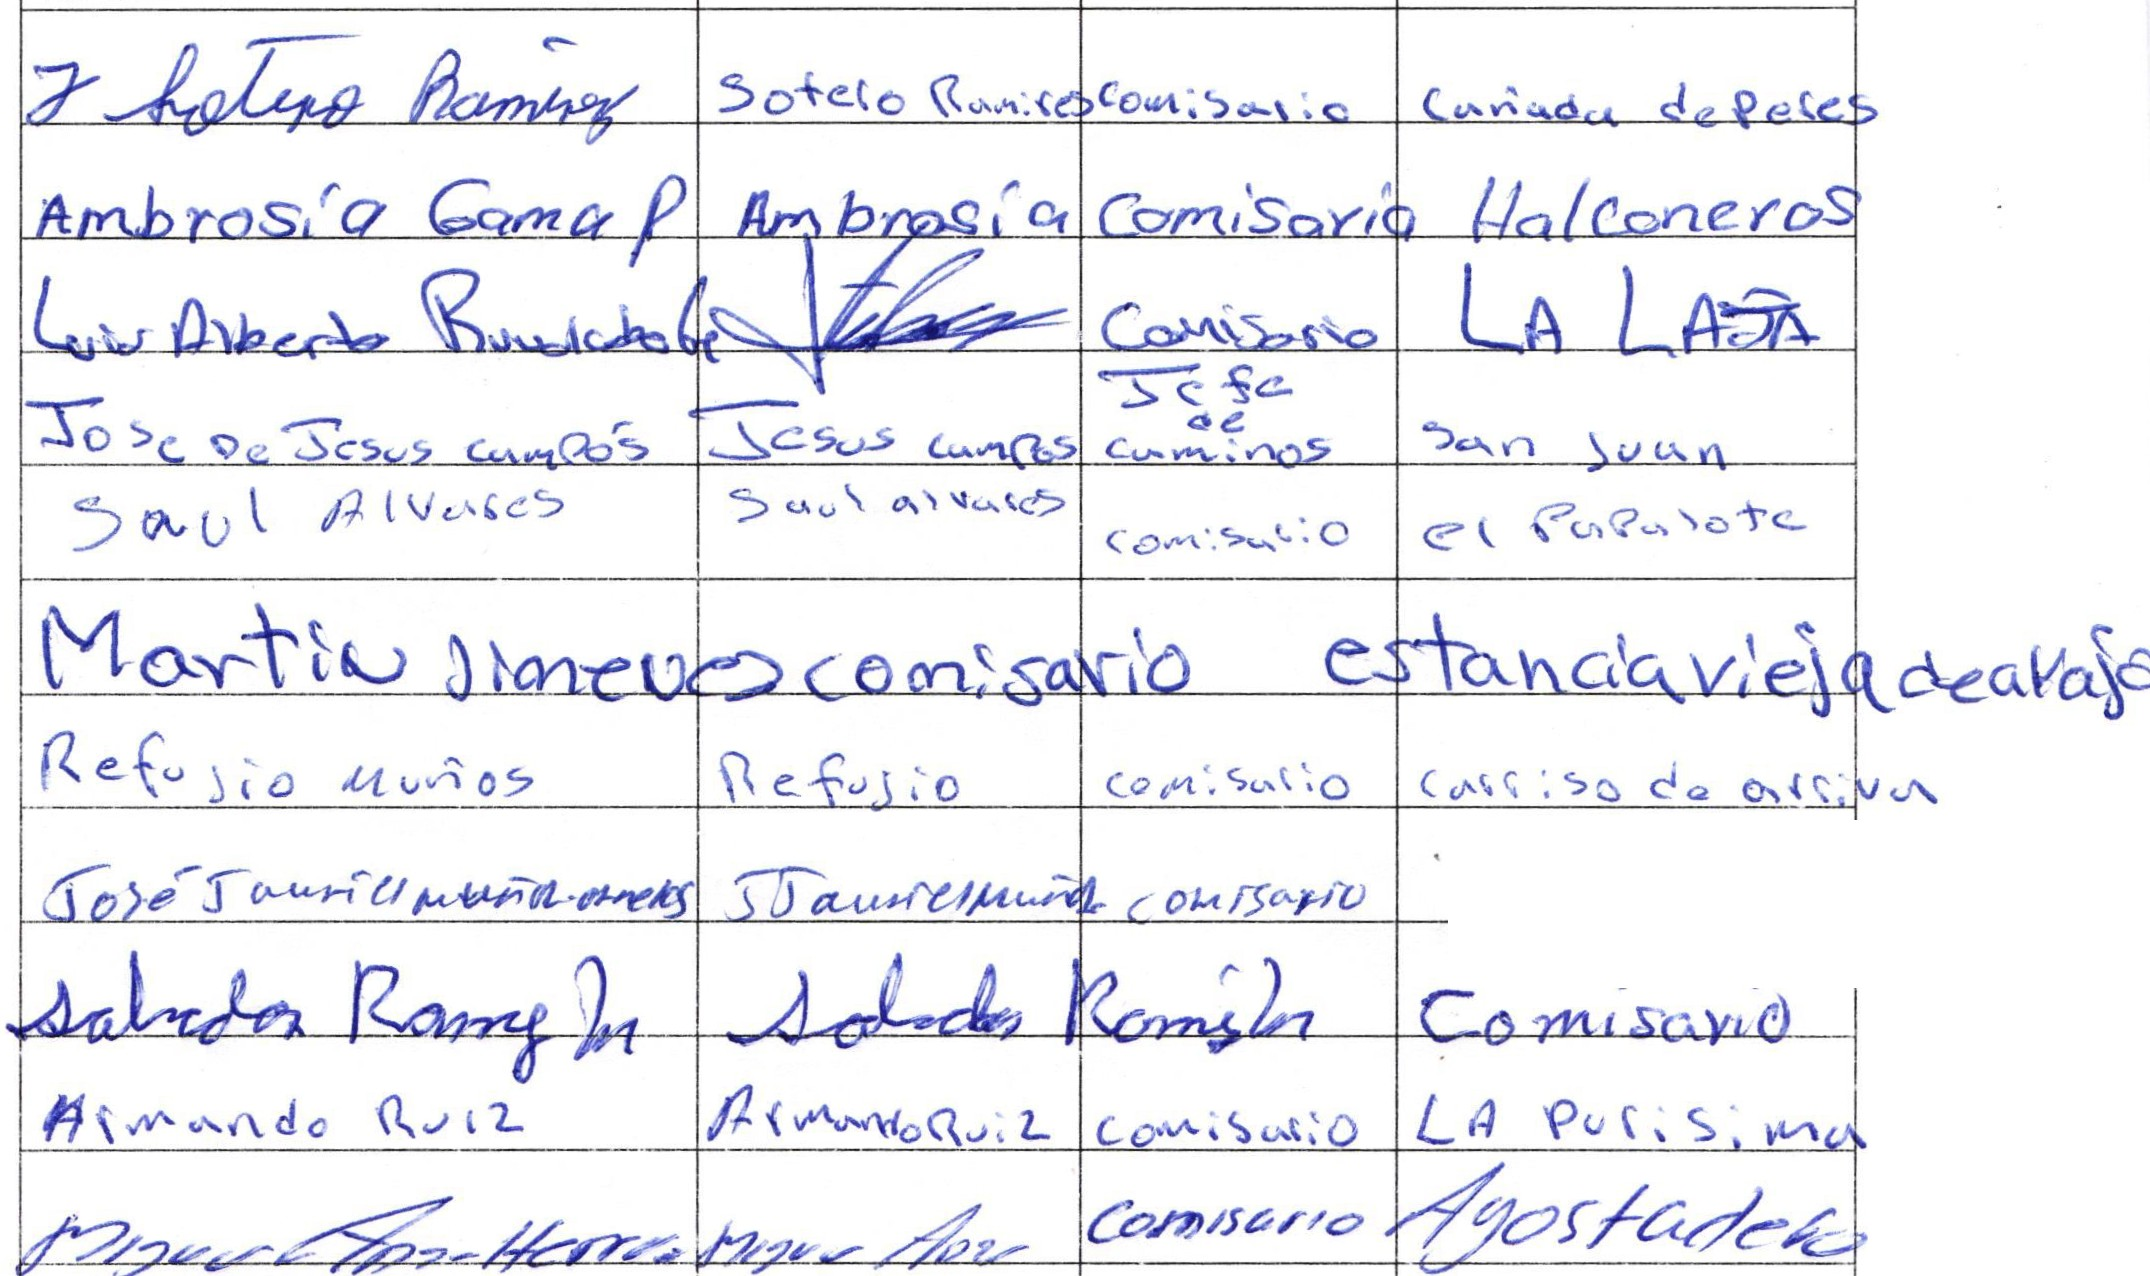 J Sotero Ramirez Sotelo Ramires comisario Cañada de Peres
Ambrosía Gama P Ambrosía Comisaria Halconeros
Luis Alberto Comisario LA LAJA
Jose De Jesus campos Jesus campos Jefe de caminos San Juan
Saul Alvares Saul alvares comisario el Papalote
Martin Jimenes comisario estancia vieja de avajo
Refujio Muños Refujio comisario carriso de arriva
José comisario
Salvador Salvador Comisario
Armando Ruiz Armando Ruiz comisario LA Purisima
Comisario Agostadero